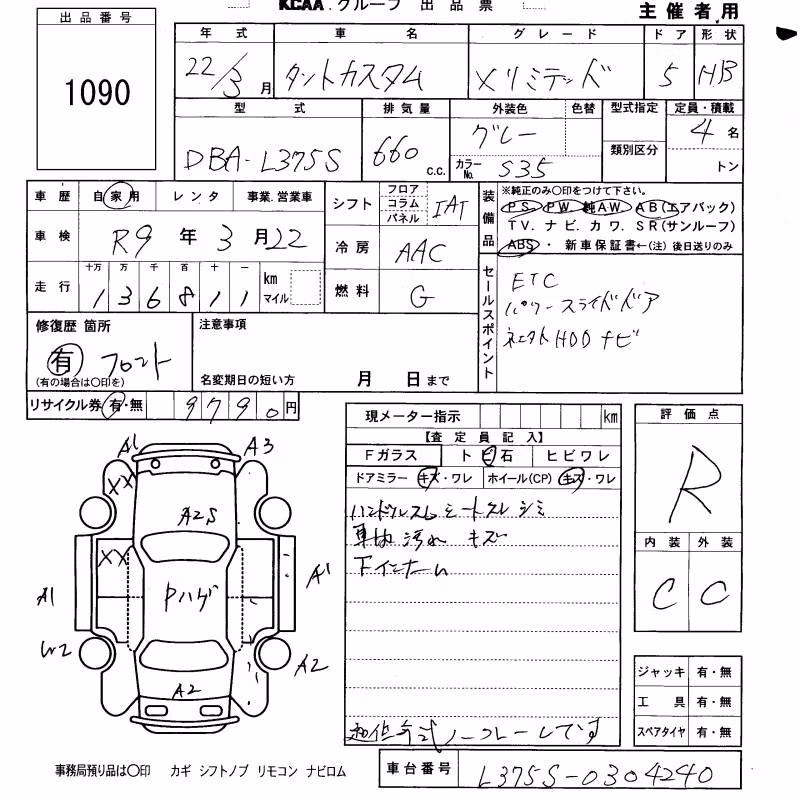 KCAA.グループ 出品票
主催者用
出品番号
1090
年式 車名 グレード ドア 形状
22/3月 タントカスタム Xリミテッド 5 HB
型式 排気量 外装色 色替 型式指定 定員・積載
DBA-L375S 660 c.c. グレー 類別区分 4名
カラーNo. S35 トン
車歴 自家用 レンタ 事業.営業車
シフト フロア コラム パネル IAT
車検 R9年3月22
冷房 AAC
走行 十万 万 千 百 十 一
136811 km マイル
燃料 G
装備品 ※純正のみ○印をつけて下さい。
PS PW 純AW AB(エアバック)
TV. ナビ. カワ. SR(サンルーフ)
ABS・新車保証書←(注)後日送りのみ
セールスポイント
ETC
パワースライドドア
HDDナビ
修復歴 箇所
有 フロント
(有の場合は○印を)
注意事項
名変期日の短い方 月 日まで
リサイクル券 有・無 9790円
現メーター指示 km
【査定員記入】
Fガラス トビ石 ヒビワレ
ドアミラー キズ・ワレ ホイール(CP) キズ・ワレ
ハンドルスレ シートスレ シミ
車内汚れ キズ
Fインナー
ノークレームです
評価点
R
内装 外装
C C
ジャッキ 有・無
工具 有・無
スペアタイヤ 有・無
A1 A3
XX
A2S
XX
Pハゲ
A1
A1
W2
A2
A2
事務局預り品は○印 カギ シフトノブ リモコン ナビロム
車台番号 L375S-0304240